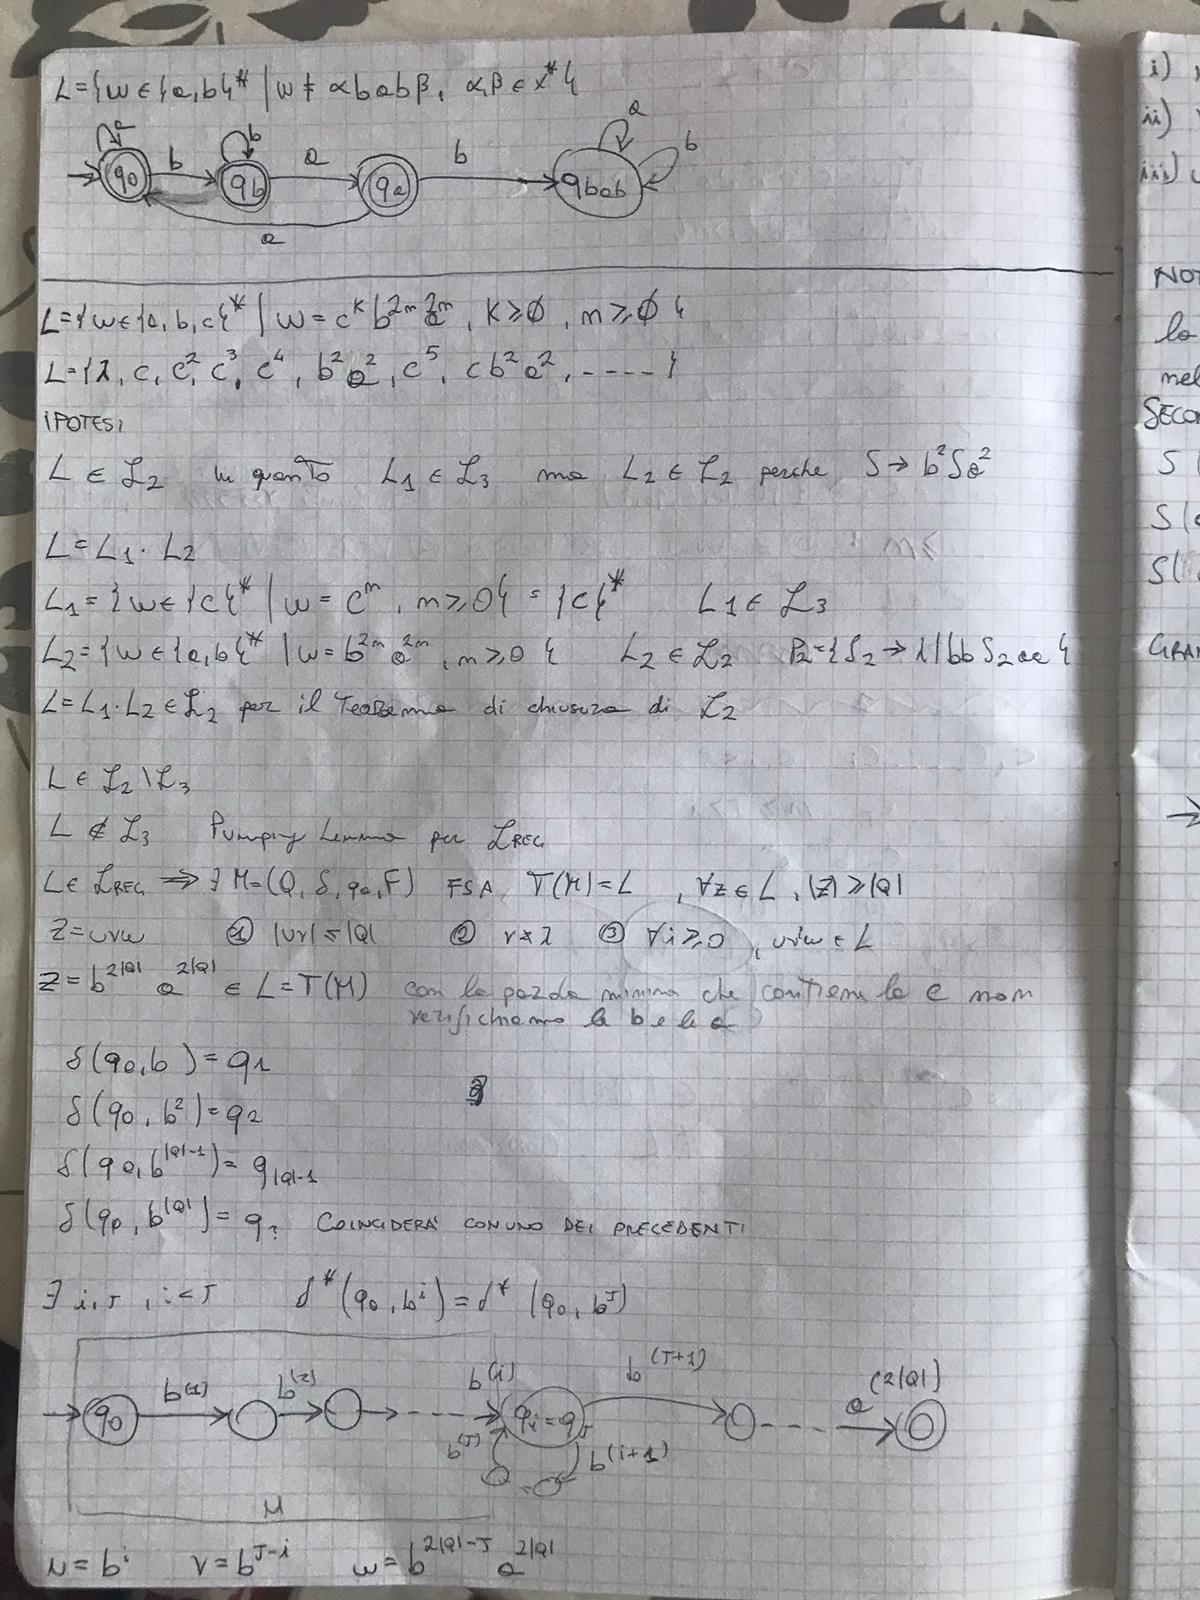 L={w∈{a,b}* | w ≠ αbabβ, α,β ∈ X* }
a b a b a b
q0 qb qa qbab
a
L={w∈{a,b,c}* | w = c^k b^2n a^2n, k≥∅, n≥∅ }
L={λ, c, c^2, c^3, c^4, b^2a^2, c^5, cb^2a^2, ----- }
IPOTESI
L ∈ ℒ2 in quanto L1 ∈ ℒ3 ma L2 ∈ ℒ2 perche S → b^2Sa^2
L = L1 · L2
L1 = {w∈{c}* | w = c^n, n≥0} = {c}* L1 ∈ ℒ3
L2 = {w∈{a,b}* | w = b^2n a^2n, n≥0 } L2 ∈ ℒ2 P2={S2 → λ | bbS2aa }
L = L1·L2 ∈ ℒ2 per il Teorema di chiusura di ℒ2
L ∈ ℒ2 \ ℒ3
L ∉ ℒ3 Pumping Lemma per ℒREG
L∈ ℒREG ⟹ ∃ M=(Q, δ, q0, F) FSA, T(M)=L, ∀z∈L, |z|≥|Q|
z=uvw ① |uv| ≤ |Q| ② v≠λ ③ ∀i≥0, uv^iw ∈ L
z = b^2|Q| a^2|Q| ∈ L = T(M) con la parola minima che contiene la c non
verifichiamo la b e la a
δ(q0,b) = q1
δ(q0, b^2) = q2
δ(q0, b^|Q|-1) = q|Q|-1
δ(q0, b^|Q|) = q? COINCIDERÀ CON UNO DEI PRECEDENTI
∃ i,J, i<J δ*(q0, b^i) = δ*(q0, b^J)
b^(1) b^(2) b^(i) b^(J+1) a^(2|Q|)
q0 qi=qJ
b^(J) b^(i+1)
M
u = b^i v = b^J-i w = b^2|Q|-J a^2|Q|
i)
ii)
iii)
NOT
la
nel
SECON
S
S
S
GRAN